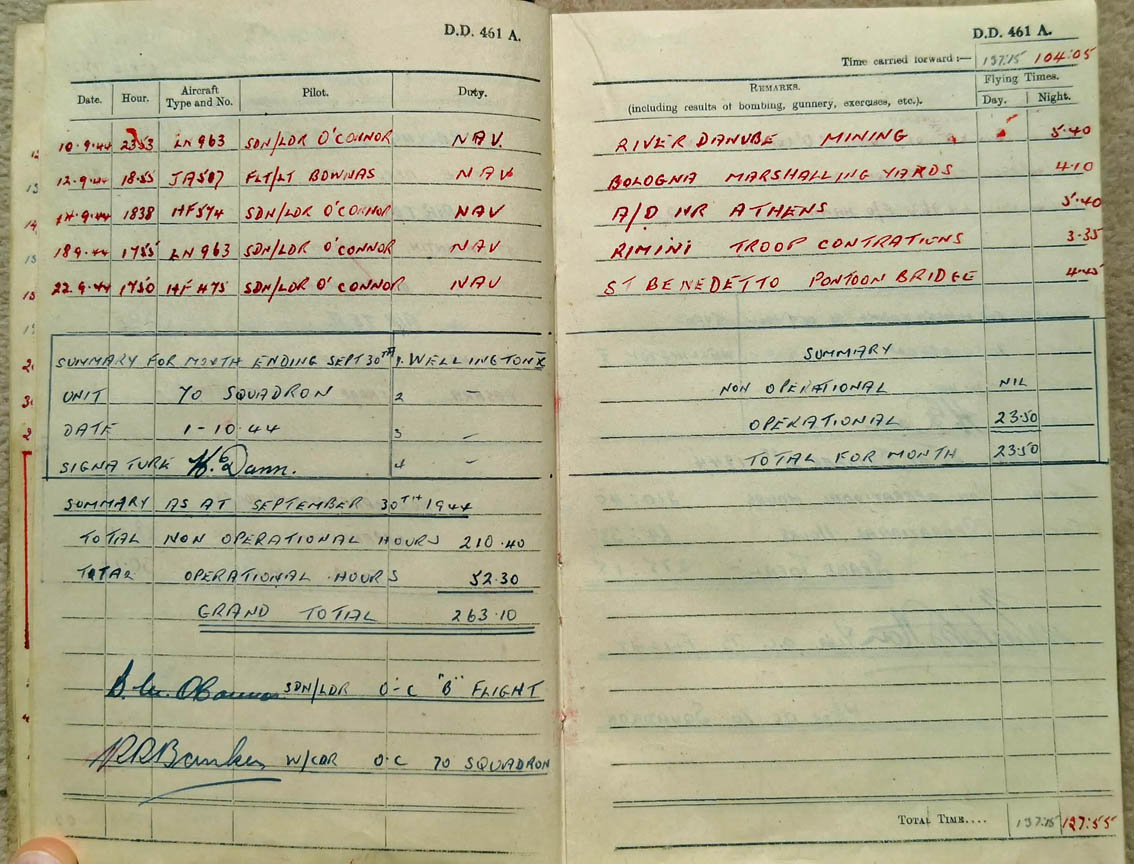 D.D. 461 A.
Date. Hour. Aircraft Type and No. Pilot. Duty.
10.9.44 2353 LN963 SDN/LDR O'CONNOR NAV.
12.9.44 18.55 JA507 FLT/LT BOWNAS NAV
14.9.44 1838 HF574 SDN/LDR O'CONNOR NAV
18.9.44 1755 LN963 SDN/LDR O'CONNOR NAV
22.9.44 1750 HF475 SDN/LDR O'CONNOR NAV
SUMMARY FOR MONTH ENDING SEPT 30TH 1. WELLINGTON X
UNIT 70 SQUADRON 2 –
DATE 1-10.44 3 –
SIGNATURE Dann. 4 –
SUMMARY AS AT SEPTEMBER 30TH 1944
TOTAL NON OPERATIONAL HOURS 210.40
TOTAL OPERATIONAL HOURS 52.30
GRAND TOTAL 263.10
SDN/LDR O.C "B" FLIGHT
W/CDR O.C 70 SQUADRON
D.D. 461 A.
Time carried forward:— 137.15 104.05
REMARKS. (including results of bombing, gunnery, exercises, etc.). Flying Times. Day. Night.
RIVER DANUBE MINING 5.40
BOLOGNA MARSHALLING YARDS 4.10
A/D NR ATHENS 5.40
RIMINI TROOP CONTRATIONS 3.35
ST BENEDETTO PONTOON BRIDGE 4.45
SUMMARY
NON OPERATIONAL NIL
OPERATIONAL 23.50
TOTAL FOR MONTH 23.50
TOTAL TIME.... 137.15 127.55